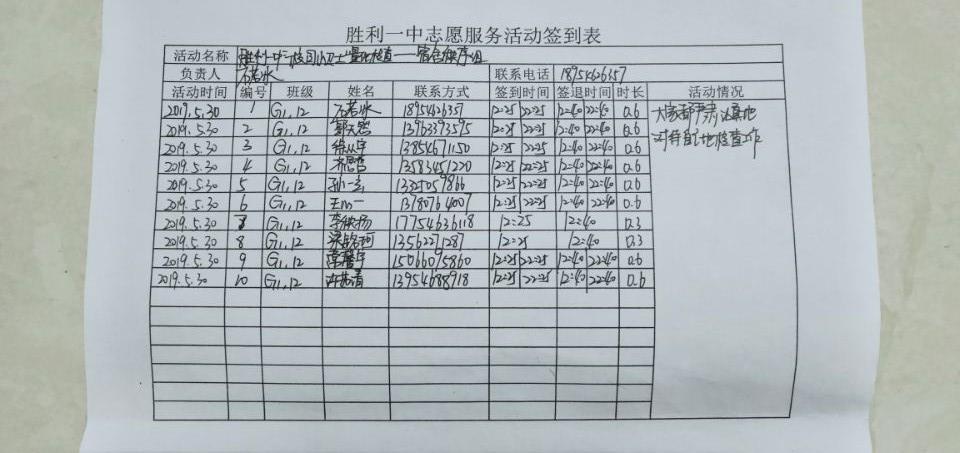 胜利一中志愿服务活动签到表
活动名称 胜利一中校园小卫士量化检查——宿舍秩序组
负责人 石若冰 联系电话 18954626357
活动时间 编号 班级 姓名 联系方式 签到时间 签退时间 时长 活动情况
2019.5.30 1 G1,12 石若冰 18954626357 12:25 22:25 12:40 22:40 0.6 大家都严肃认真地
2019.5.30 2 G1,12 13963393595 12:25 22:25 12:40 22:40 0.6 对待自己的检查工作
2019.5.30 3 G1,12 13854671150 12:25 22:25 12:40 22:40 0.6
2019.5.30 4 G1,12 13583451220 12:25 22:25 12:40 22:40 0.6
2019.5.30 5 G1,12 13325059866 12:25 22:25 12:40 22:40 0.6
2019.5.30 6 G1,12 王一 13780764007 12:25 22:25 12:40 22:40 0.6
2019.5.30 7 G1,12 17754636118 12:25 12:40 0.3
2019.5.30 8 G1,12 13562271287 12:25 12:40 0.3
2019.5.30 9 G1,12 15066095860 12:25 22:25 12:40 22:40 0.6
2019.5.30 10 G1,12 13954688918 12:25 22:25 12:40 22:40 0.6